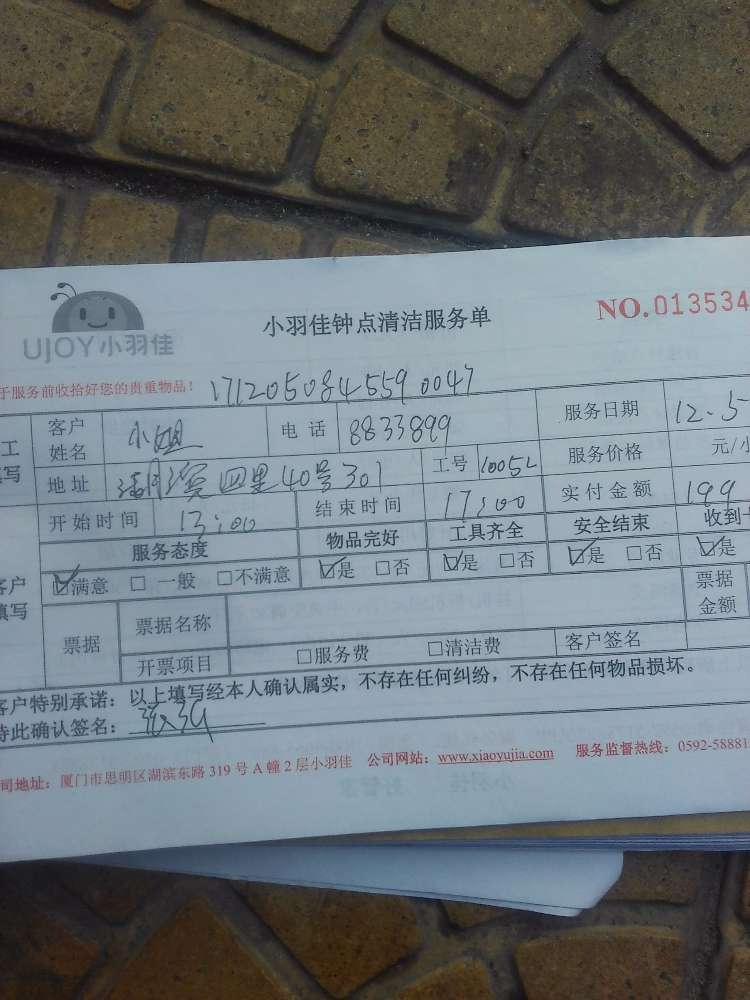 UJOY小羽佳
小羽佳钟点清洁服务单
NO.013534
于服务前收拾好您的贵重物品！ 171205084559 0047
工
填写
客户姓名 小姐 电话 8833899 服务日期 12.5
地址 四里40号301 工号 1005 服务价格 元/小
开始时间 13:00 结束时间 17:00 实付金额 199
客户
填写
服务态度 物品完好 工具齐全 安全结束 收到
☑满意 □一般 □不满意 ☑是 □否 ☑是 □否 ☑是 □否 ☑是
票据 票据名称 票据金额
开票项目 □服务费 □清洁费 客户签名
客户特别承诺：以上填写经本人确认属实，不存在任何纠纷，不存在任何物品损坏。
特此确认签名：
司地址：厦门市思明区湖滨东路319号A幢2层小羽佳 公司网站：www.xiaoyujia.com 服务监督热线：0592-58881